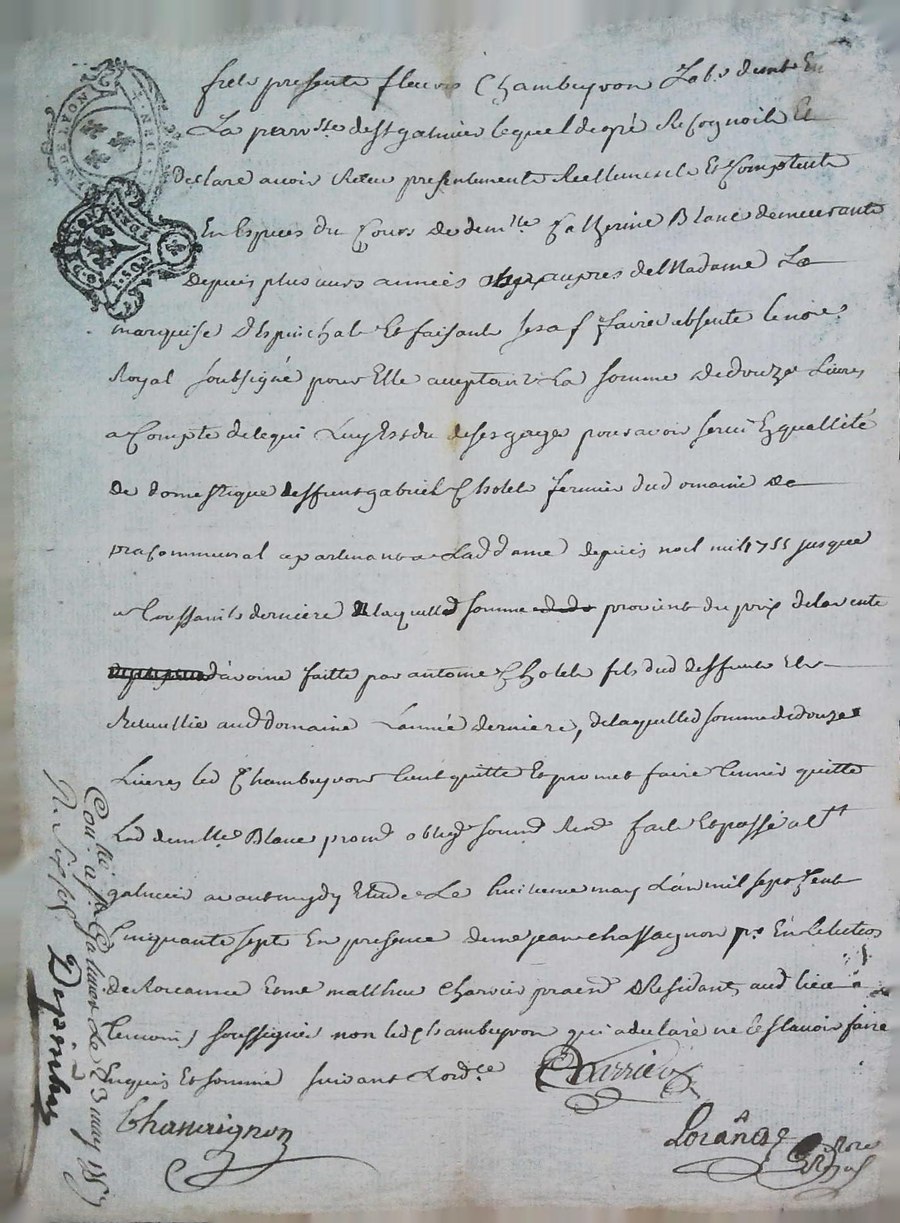 fut présent fleury Chambeyron Lab^r dems^t En
La parroisse de S^t galmier lequel de gré Recognoit Et
Declare avoir Receu presentement Reellement Et Comptent
En Especes du Cours de dem^lle Catherine Blanc demeurante
Depuis plusieurs années aupres de Madame La
marquise Despinchal Et faisant ses affaires absente le no^re
Royal soubsigné pour Elle acceptant La somme de douze Livres
a Compte de ce qui Luy Est du de ses gages pour avoir servi En quallité
de domestique deffunt gabriel Chollet fermier du domaine de
apartenant a Lad dame depuis noel mil 1755 jusque
a toussaint derniere de laquelle somme provient du prix de la vente
d'avoine faitte par antoine Chollet fils dud deffunt Et
Reueullie aud domaine L'année derniere, de laquelle somme de douze
Livres led Chambeyron tient quitte Et promet faire tenir quitte
Lad dem^lle Blanc prom^t oblig^t soum^t Ren^t fait Et passé a S^t
galmier avant mydy Etude Le huitieme may L'an mil sept Cent
Cinquante sept En presence de me jean chassagnon p^r En Lelection
de Roanne Et me matthieu Charvin praen^t Residants aud lieu
temoins soussignés non led Chambeyron qui a declaré ne le scavoir faire
Enquis Et sommé suivant Lord^ce
Chassaignon
no^re Royal
Con^llé a S^t Galmier Le 23 may 1757
R. Six sols
GEN DE LYON